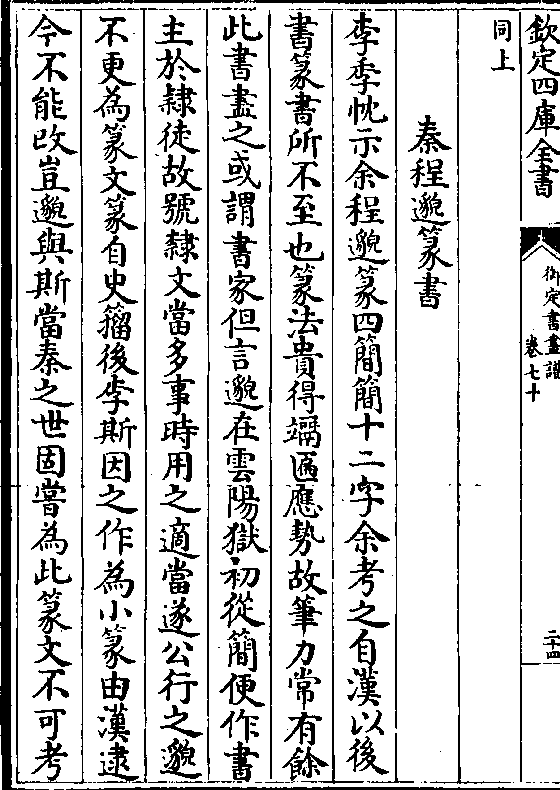 欽定四庫全書
御定書畫譜
卷七十
二十四
同上
秦程邈篆書
李季忱示余程邈篆四簡簡十二字余考之自漢以後
書篆書所不至也篆法貴得𥮉匾應勢故筆力常有餘
此書盡之或謂書家但言邈在雲陽獄初從簡便作書
主於隸徒故號隸文當多事時用之適當遂公行之邈
不更為篆文篆自史籀後李斯因之作為小篆由漢逮
今不能改豈邈與斯當秦之世固嘗為此篆文不可考